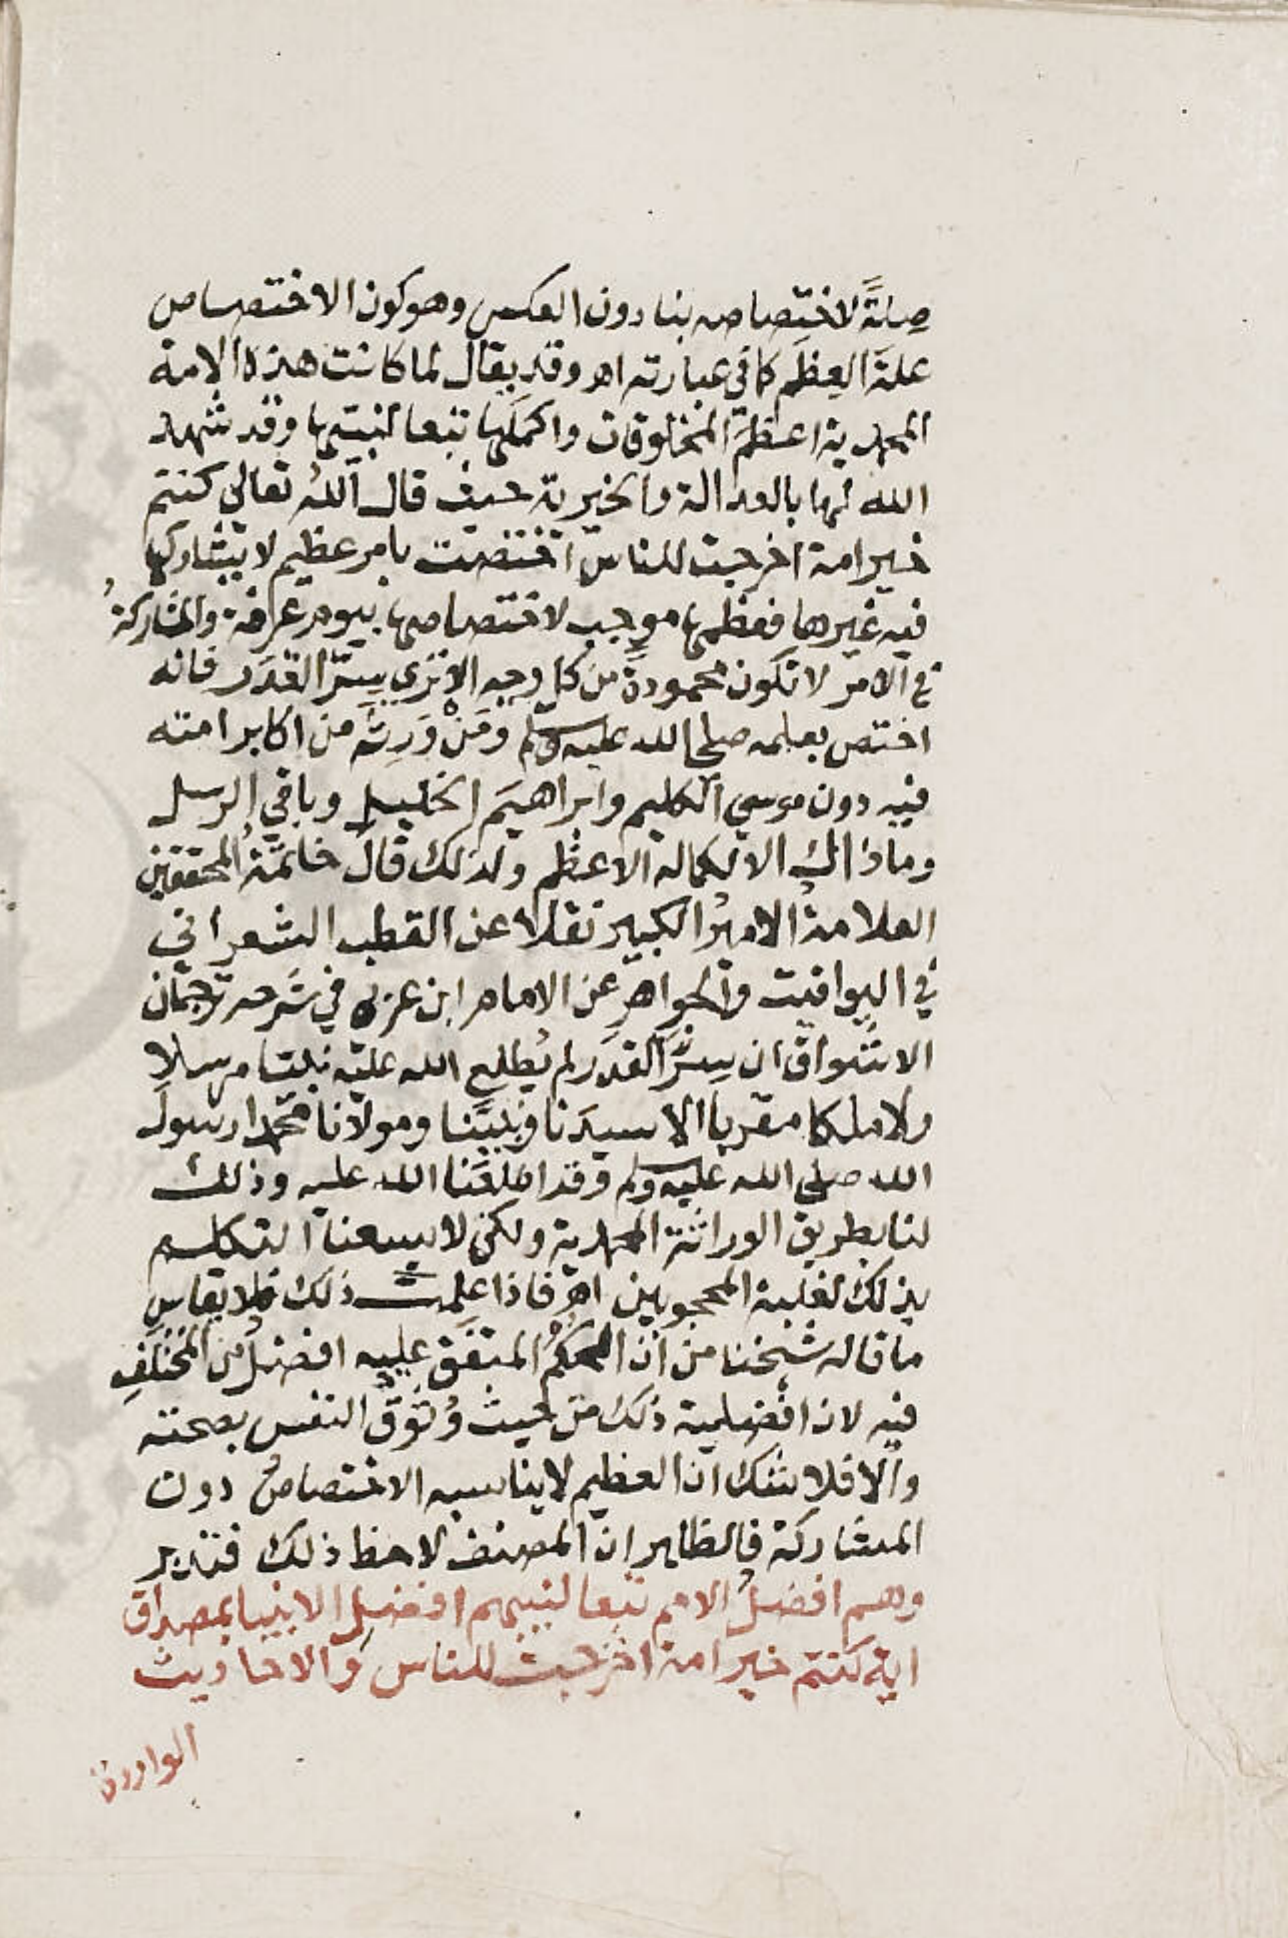 علةً لاختصاصه بنا دون العكس وهو كون الاختصاص
علة العِظَم كما في عبارته اهـ وقد يقال لما كانت هذه الامة
المحمدية اعظمَ المخلوقات واكملَها تبعا لنبيها وقد شهد
الله لها بالعدالة والخيرية حيث قال اللهُ تعالى كنتم
خير امة اخرجت للناس اختصت بامر عظيم لا يشاركها
فيه غيرها فعظمها موجب لاختصاصها بيوم عرفة والمشاركةُ
في الامر لا تكون محمودةً من كل وجه الا ترى سِرَّ القدَر فانه
اختص بعلمه صلى الله عليه وسلم ومَنْ وَرِثَه من اكابر امته
فيه دون موسى الكليم وابراهيم الخليل وباقي الرسل
وما ذاك الا لكماله الاعظم ولذلك قال خاتمةُ المحققين
العلامةُ الاميرُ الكبير نقلا عن القطب الشعراني
في اليواقيت والجواهر عن الامام ابن عربي في شرحه ترجمان
الاشواق ان سِرَّ القدَر لم يُطلع الله عليه نبيا مرسلا
ولا ملكا مقربا الا سيدَنا ونبيَّنا ومولانا محمدا رسول
الله صلى الله عليه وسلم وقد اطلعَنا الله عليه وذلك
لنا بطريق الوراثة المحمدية ولكن لا يسعنا التكلم
بذلك لغلبة المحجوبين اهـ فاذا علمت ذلك فلا يقاس
ما قاله شيخنا من ان الحكمُ المتفق عليه افضلُ من المختلَفِ
فيه لان افضلية ذلك من حيث وُثوق النفس بصحته
والا فلا شك ان العظيم لا يناسبه الاختصاصُ دون
المشاركة فالظاهر ان المصنف لاحظ ذلك فتدبر
وهم افضلُ الامم تبعا لنبيهم افضل الانبيا بمصداق
اية كنتم خير امة اخرجت للناس والاحاديث
الواردة